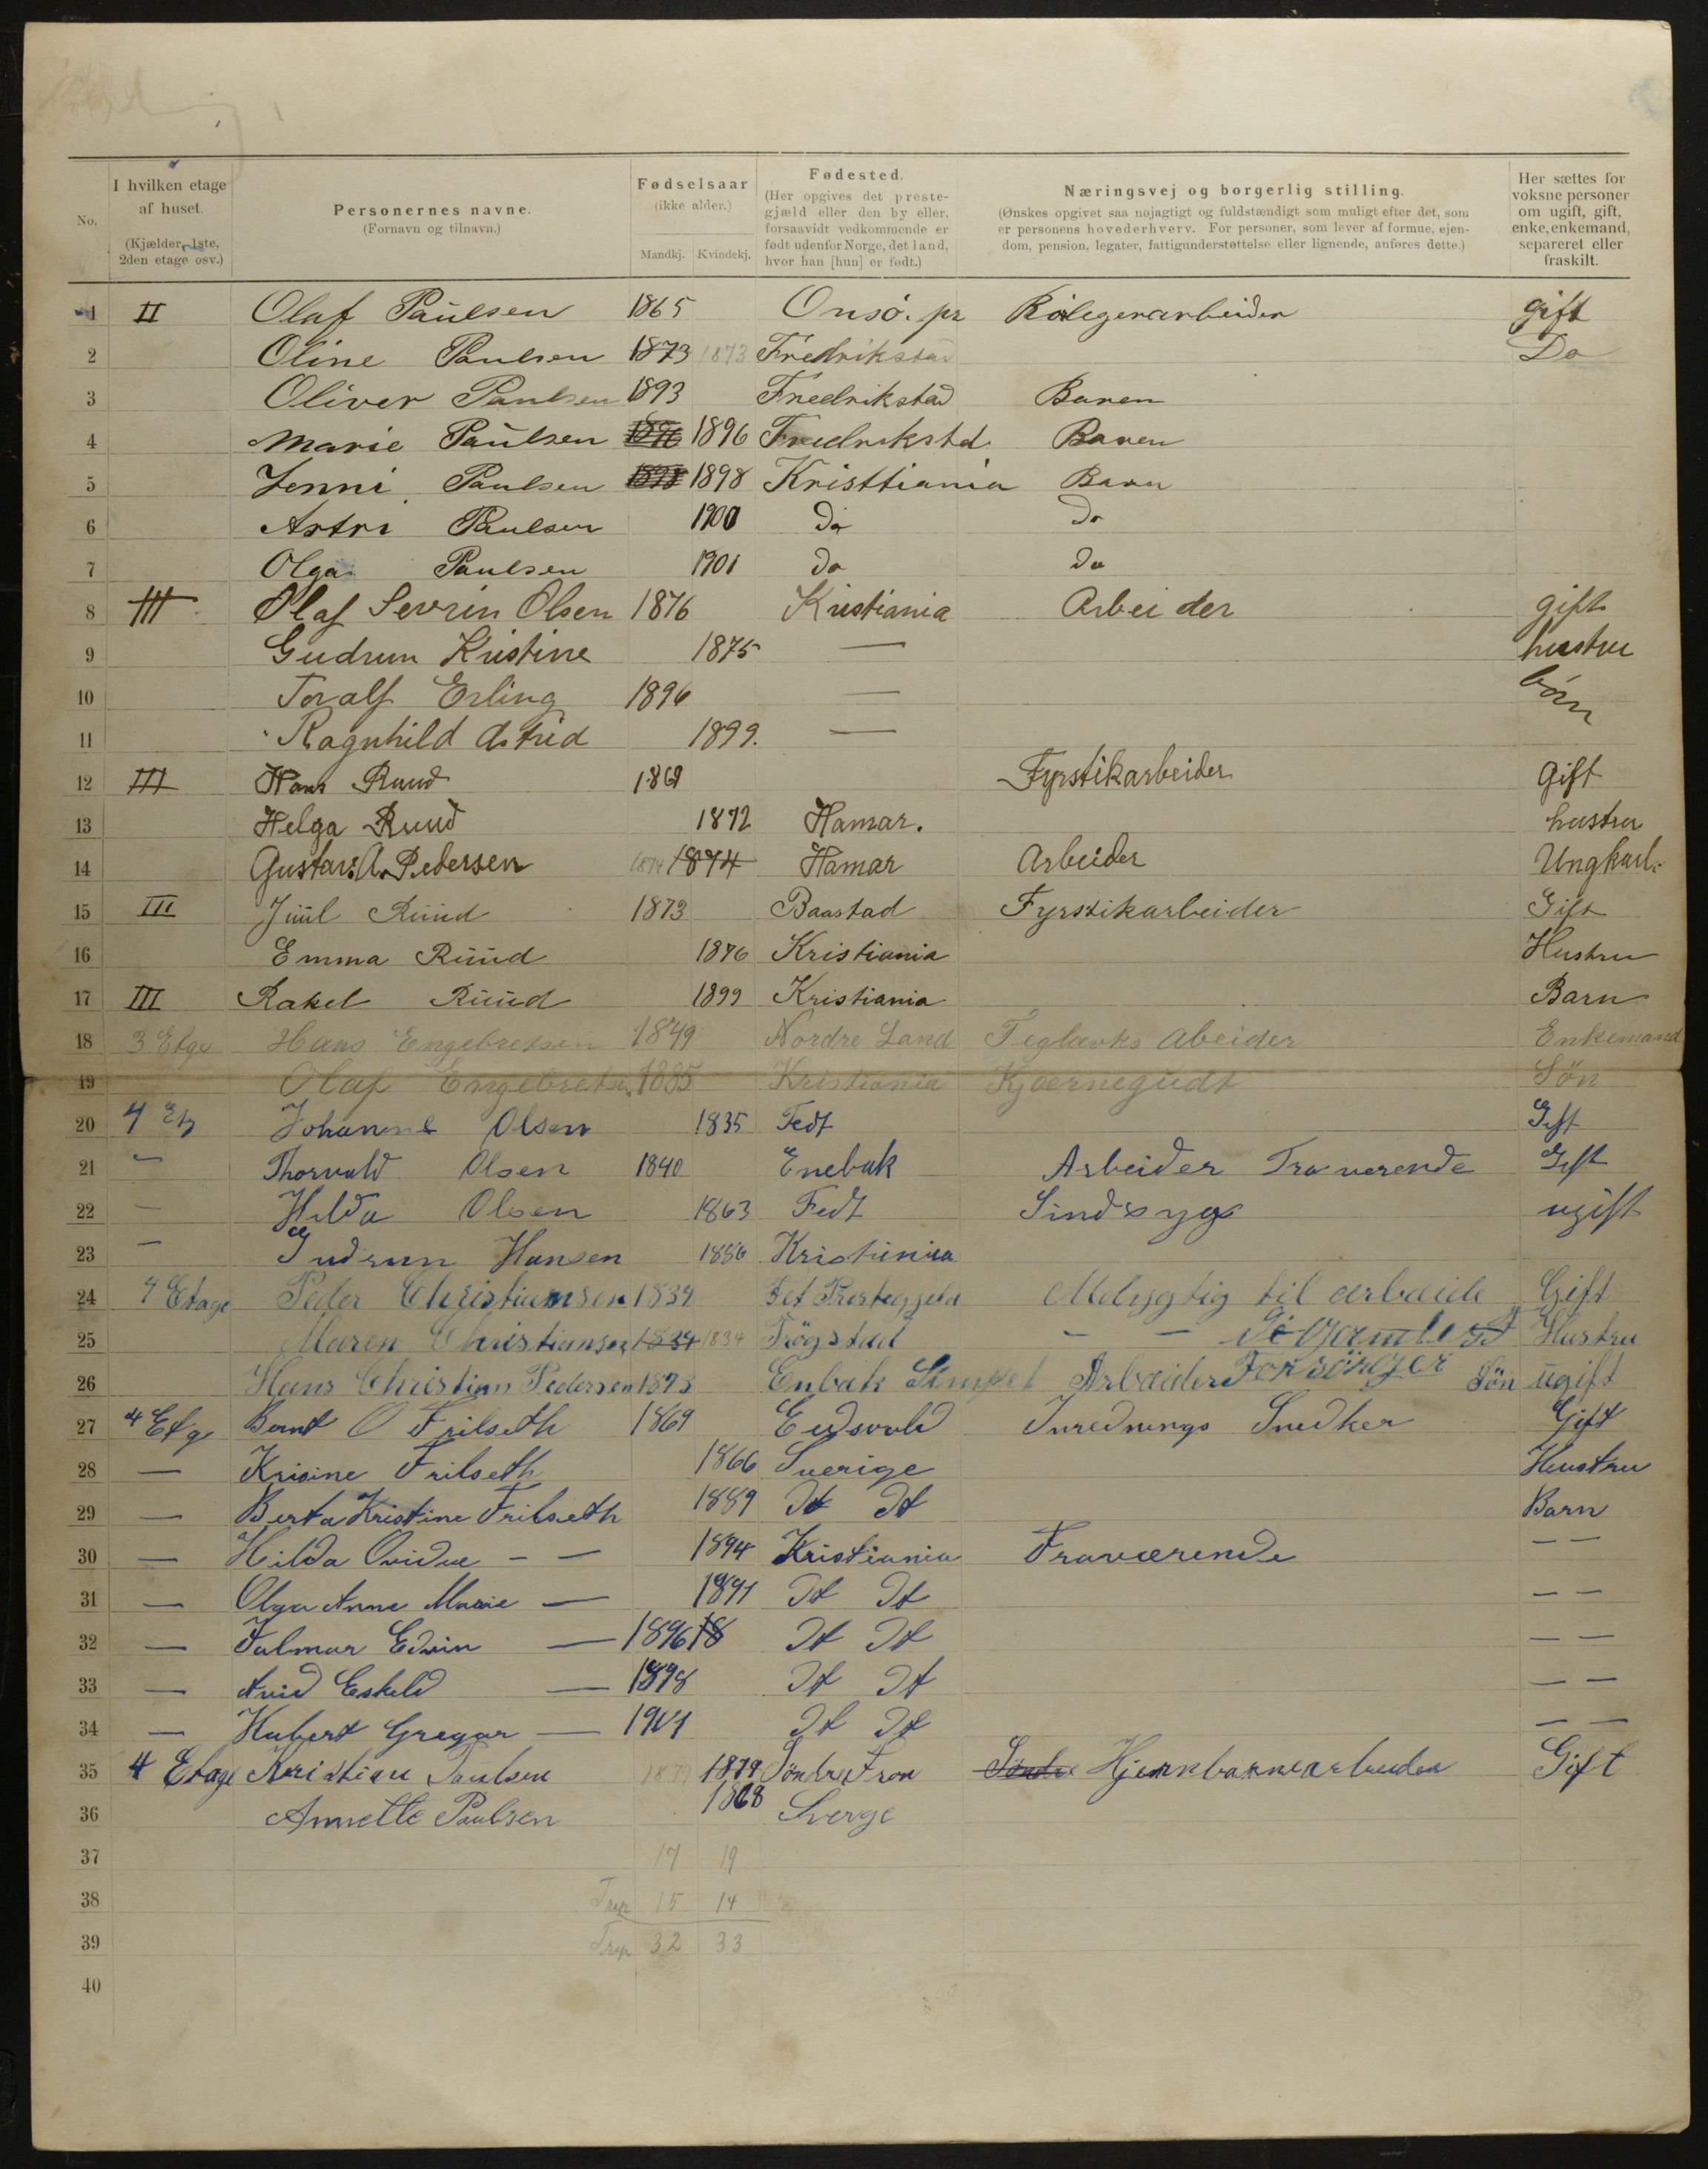 No.
I hvilken etage af huset.
(Kjælder, 1ste, 2den etage osv.)
Personernes navne.
(Fornavn og tilnavn.)
Fødselsaar
(ikke alder.)
Mandkj. Kvindekj.
Fødested.
(Her opgives det prestegjæld eller den by eller, forsaavidt vedkommende er født udenfor Norge, det land, hvor han [hun] er født.)
Næringsvej og borgerlig stilling.
(Ønskes opgivet saa nøjagtigt og fuldstændigt som muligt efter det, som er personens hovederhverv. For personer, som lever af formue, ejendom, pension, legater, fattigunderstøttelse eller lignende, anføres dette.)
Her sættes for voksne personer om ugift, gift, enke, enkemand, separeret eller fraskilt.
1 II Olaf Paulsen 1865 Onsö. pr gift
2 Oline Paulsen 1873 1873 Fredrikstad Do
3 Oliver Paulsen 1893 Fredrikstad Baren
4 Marie Paulsen 1896 1896 Fredrikstd Baren
5 Jenni Paulsen 1898 1898 Kristtiania Baren
6 Astri Paulsen 1900 Do Do
7 Olga Paulsen 1901 Do Do
8 III Olaf Sevrin Olsen 1876 Kristiania Arbeider gift
9 Gudrun Kristine 1875 — hustru
10 Toralf Erling 1896 — börn
11 Ragnhild Astrid 1899. —
12 III Hans Ruud 1861 Fyrstikarbeider Gift
13 Helga Ruud 1872 Hamar. hustru
14 Gustav. A. Pedersen 1874 1874 Hamar Arbeider Ungkarl.
15 III Juul Ruud 1873 Baastad Fyrstikarbeider Gift
16 Emma Ruud 1876 Kristiania Hustru
17 III Rakel Ruud 1899 Kristiania Barn
18 3 Etge Hans Engebretsen 1849 Nordre Land Teglverks Abeider Enkemand
19 Olaf Engebretsn. 1885 Kristiania Kjærnegudt Sön
20 4 Etg Johanne Olsen 1835 Fedt Gift
21 — Thorvald Olsen 1840 Enebak Arbeider Fraverende Gift
22 — Hilda Olsen 1863 Fedt Sindsyg ugift
23 — Gudrun Hansen 1886 Kristiania
24 4 Etage Peder Christiansen 1839 Fet Presteggeld Udygtig til arbeide Gift
25 Maren Christiansen 1834 1834 Trögstad — — Hustru
26 Hans Christian Pedersen 1873 Enbak Simpel Arbeider Forsörger Sön ugift
27 4 Etg Bernt O Frilseth 1869 Eidsvold Inrednings Snedker Gift
28 — Krisine Frilseth 1866 Sverige Heustru
29 — Berta Kristine Frilseth 1889 Dt Dt Barn
30 — Hilda Ovidue — — 1894 Kristiania Fraværende — —
31 — Olga Anne Marie — 1891 Dt Dt — —
32 — Jalmar Edvin — 1896 18 Dt Dt — —
33 — Arvid Eskild — 1898 Dt Dt — —
34 — Hubert Gregar — 1901 Dt Dt — —
35 4 Etage Kristian Paulsen 1879 1879 Söndre Fron Söndre Hjernbanearbeider Gift
36 Annette Paulsen 1868 Sverge
37 17 19
38 15 14
39 32 33
40